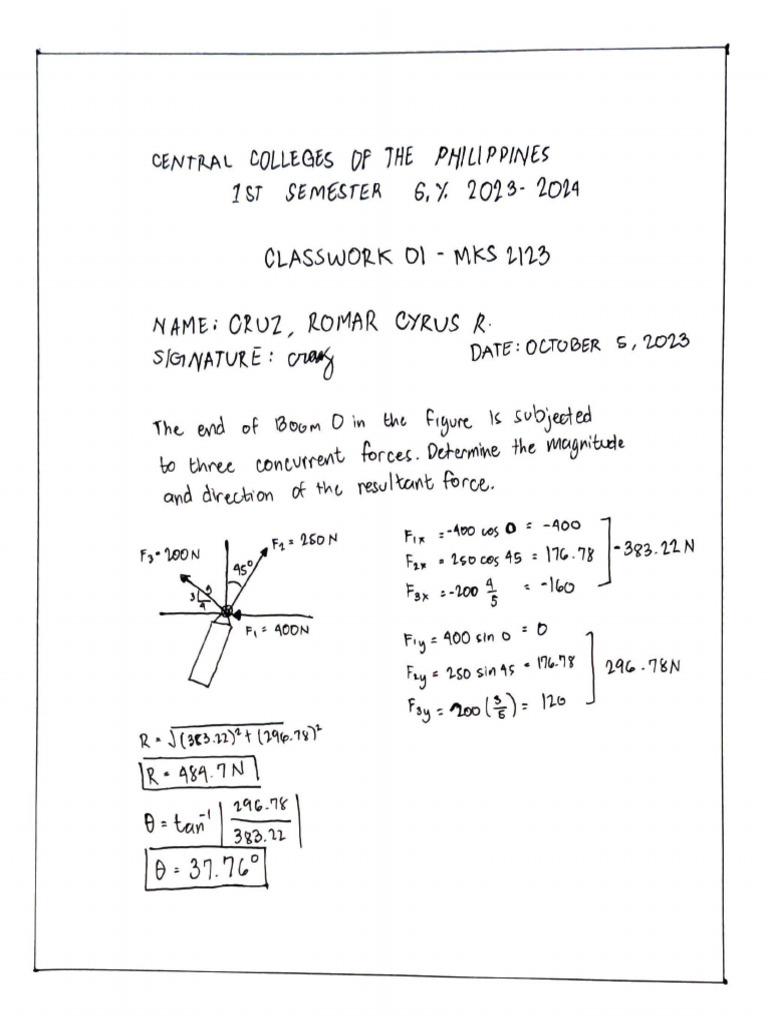 CENTRAL COLLEGES OF THE PHILIPPINES
1ST SEMESTER S.Y. 2023-2024
CLASSWORK 01 - MKS 2123
NAME: CRUZ, ROMAR CYRUS R.
SIGNATURE:
DATE: OCTOBER 5, 2023
The end of Boom O in the figure is subjected
to three concurrent forces. Determine the magnitude
and direction of the resultant force.
F3 = 200N
F2 = 250N
45°
5
3
4
F1 = 400N
F1x = -400 cos 0 = -400
F2x = 250 cos 45 = 176.78
F3x = -200 4/5 = -160
-383.22N
F1y = 400 sin 0 = 0
F2y = 250 sin 45 = 176.78
F3y = 200 (3/5) = 120
296.78N
R = √(383.22)² + (296.78)²
R = 484.7N
θ = tan⁻¹ | 296.78 / 383.22 |
θ = 37.76°